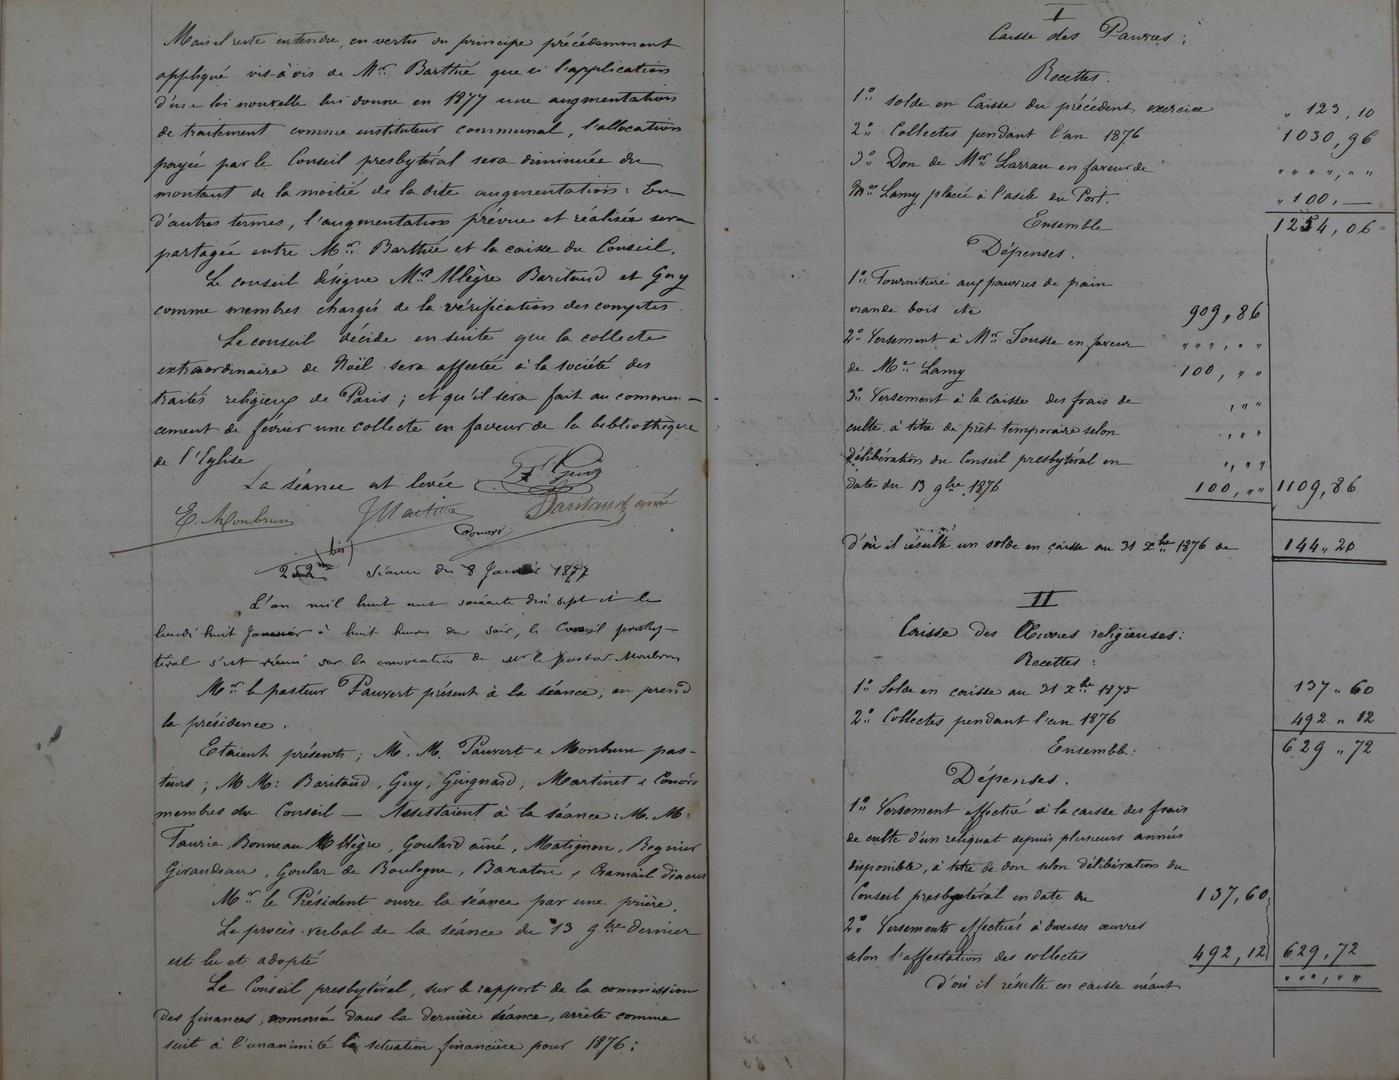 Mais il reste entendu, en vertu du principe précédemment
appliqué vis-à-vis de Mr Barthié que si l'application
d'une loi nouvelle lui donne en 1877 une augmentation
de traitement comme instituteur communal, l'allocation
payée par le Conseil presbytéral sera diminuée du
montant de la moitié de la dite augmentation: En
d'autres termes, l'augmentation prévue et réalisée sera
partagée entre Mr Barthié et la caisse du Conseil.
Le conseil désigne Mrs Allègre Baritaud et Guy
comme membres chargés de la vérification des comptes
Le conseil décide ensuite que la collecte
extraordinaire de Noël sera affectée à la société des
traités religieux de Paris; et qu'il sera fait au commen-
cement de février une collecte en faveur de la bibliothèque
de l'Eglise
La séance est levée
E. Monbrun
Baritaud ainé
252me bis) Séance du 8 Janvier 1877
L'an mil huit cent soixante dix sept et le
lundi huit Janvier à huit heures du soir, le Conseil presby-
téral s'est réuni sur la convocation de mr le pasteur Monbrun
Mr le pasteur Pauvert présent à la séance, en prend
la présidence.
Etaient présents; M. M. Pauvert & Monbrun pas-
teurs; M M: Baritaud, Guy, Guignard, Martinet &
membres du Conseil — Assistaient à la séance: M. M:
Faurie, Bonneau Allègre, Goulard ainé, Matignon, Regnier
Giraudeau, Goulard de Boulogne, Baraton, & Chamail diacres
Mr le Président ouvre la séance par une prière.
Le procès-verbal de la séance du 13 9bre dernier
est lu et adopté
Le Conseil presbytéral, sur le rapport de la commission
des finances, nommée dans la dernière séance, arrête comme
suit à l'unanimité la situation financière pour 1876:
I
Caisse des Pauvres:
Recettes.
1o solde en Caisse du précédent exercice " 123,10
2o Collectes pendant l'an 1876 1030,96
3o Don de Mr Larrau en faveur de " " " " , " "
Mr Lamy placé à l'asile du Port. " 100, —
Ensemble 1254,06
Dépenses.
1o Fourniture aux pauvres de pain
viande bois etc 909,86
2o Versement à Mr Tousse en faveur " " " , " "
de Mr Lamy 100, " "
3o Versement à la caisse des frais de , " "
culte à titre de prêt temporaire selon " , " "
délibération du Conseil presbytéral en " , " "
date du 13 9bre 1876 100, " " 1109,86
d'où il résulte un solde en caisse au 31 Xbre 1876 de 144 " 20
II
Caisse des Œuvres religieuses:
Recettes:
1o Solde en caisse au 31 Xbre 1875 137 " 60
2o Collectes pendant l'an 1876 492 " 12
Ensemble: 629 " 72
Dépenses.
1o Versement effectué à la caisse des frais
de culte d'un reliquat depuis plusieurs années
disponible, à titre de don selon délibération du
Conseil presbytéral en date du 137,60
2o Versements effectués à diverses œuvres
selon l'affectation des collectes 492,12 629,72
d'où il résulte en caisse néant " " " , " "